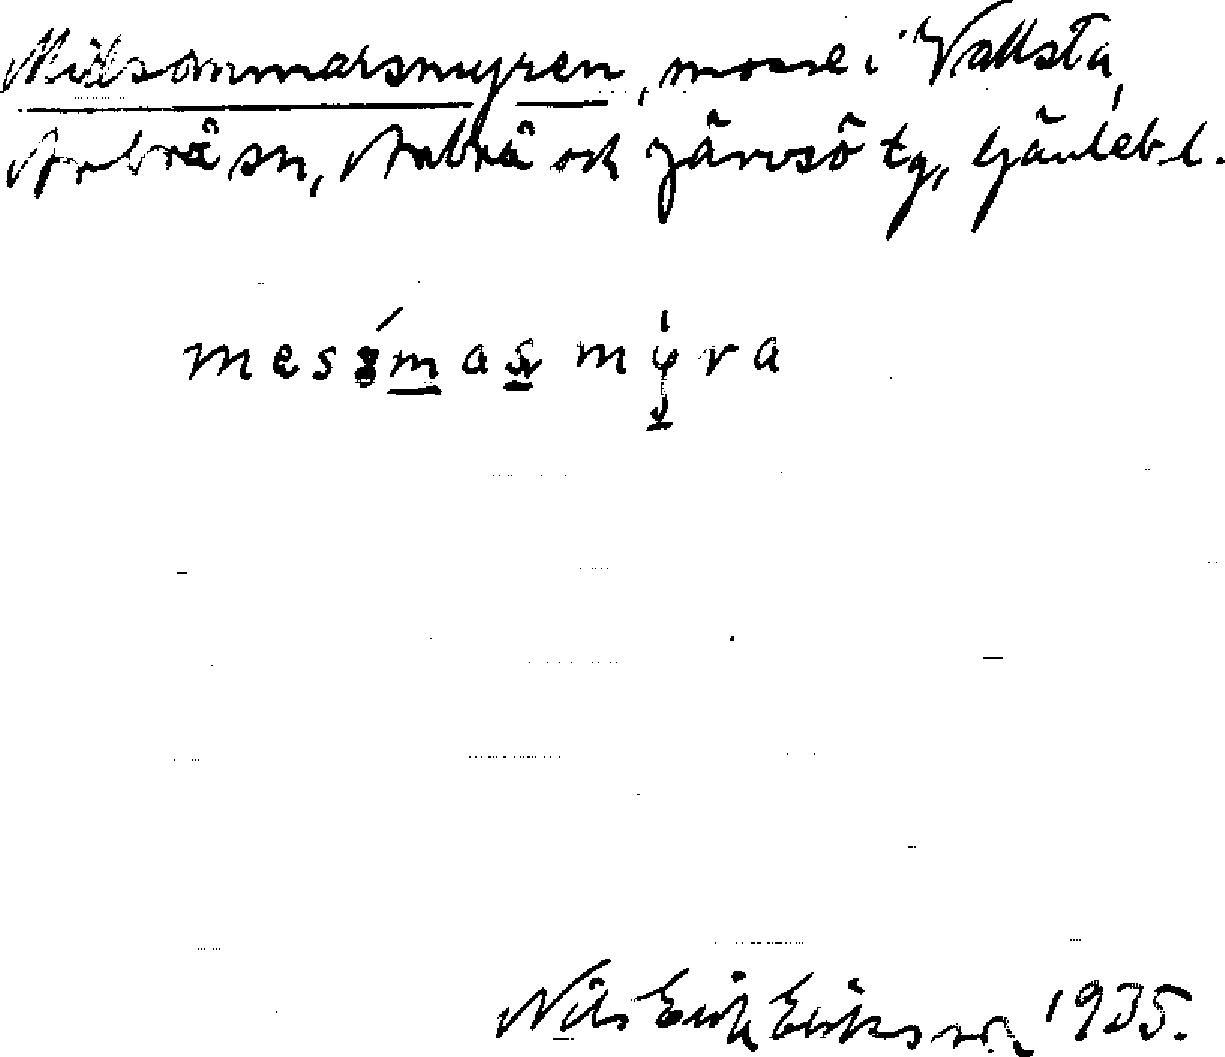 Midsommarsmyren, mosse i Vallsta,
Arbrå sn, Arbrå och Järvsö tg, Gävleb. l.
mesmas myra
Nils Erik Eriksson 1935.